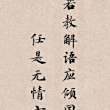 若教解语应倾国
任是无情亦